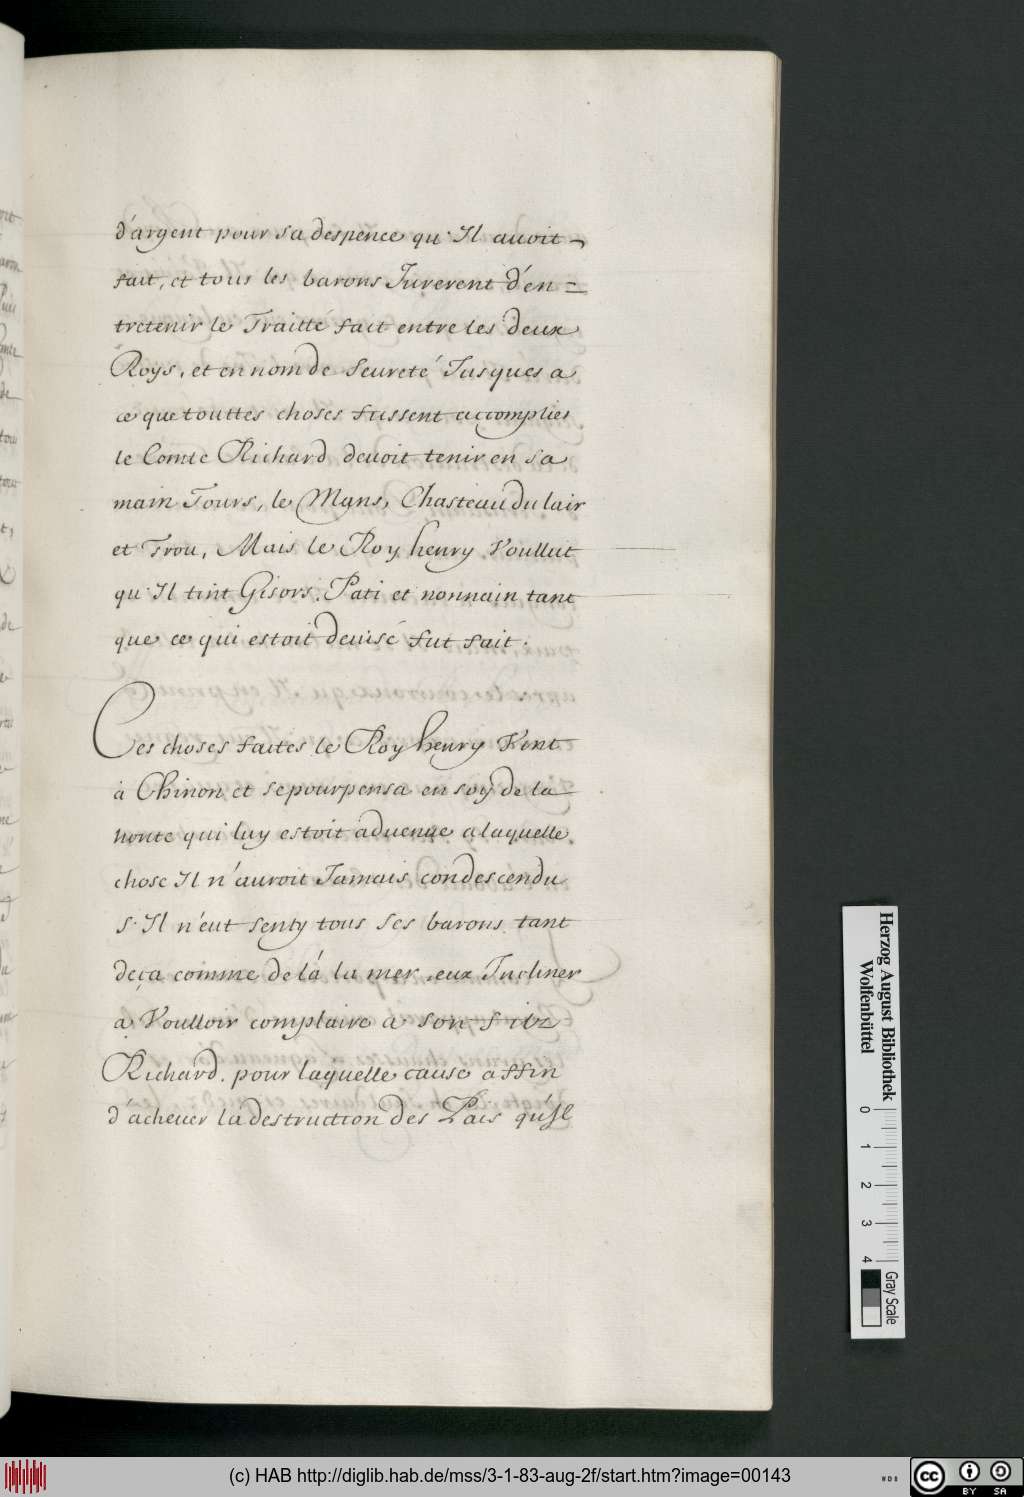 d'argent pour sa despence qu'Il auoit
fait, et tous les barons Jurerent d'en=
tretenir le Traitté fait entre les deux
Roys, et en nom de Seureté Jusques a
ce que touttes choses fussent accomplies
le Comte Richard deuoit tenir en sa
main Tours, le Mans, Chasteau du lair
et Trou, Mais le Roy henry Voullut
qu'Il tint Gisors. Pati et nonnain tant
que ce qui estoit deuisé fut fait.
Ces choses faites le Roy henry Vint
à Chinon et se pourpensa en soÿ de la
honte qui luy estoit aduenue a laquelle
chose Il n'auroit Jamais condescendu
s'Il n'eut senty tous ses barons tant
deça comme de lá la mer, eux Jncliner
a Voulloir complaire a son filz
Richard. pour laquelle cause affin
d'acheuer la destruction des Païs qu'Jl
Herzog August Bibliothek
Wolfenbüttel
0 1 2 3 4
Gray Scale
(c) HAB http://diglib.hab.de/mss/3-1-83-aug-2f/start.htm?image=00143
WDB
cc BY SA